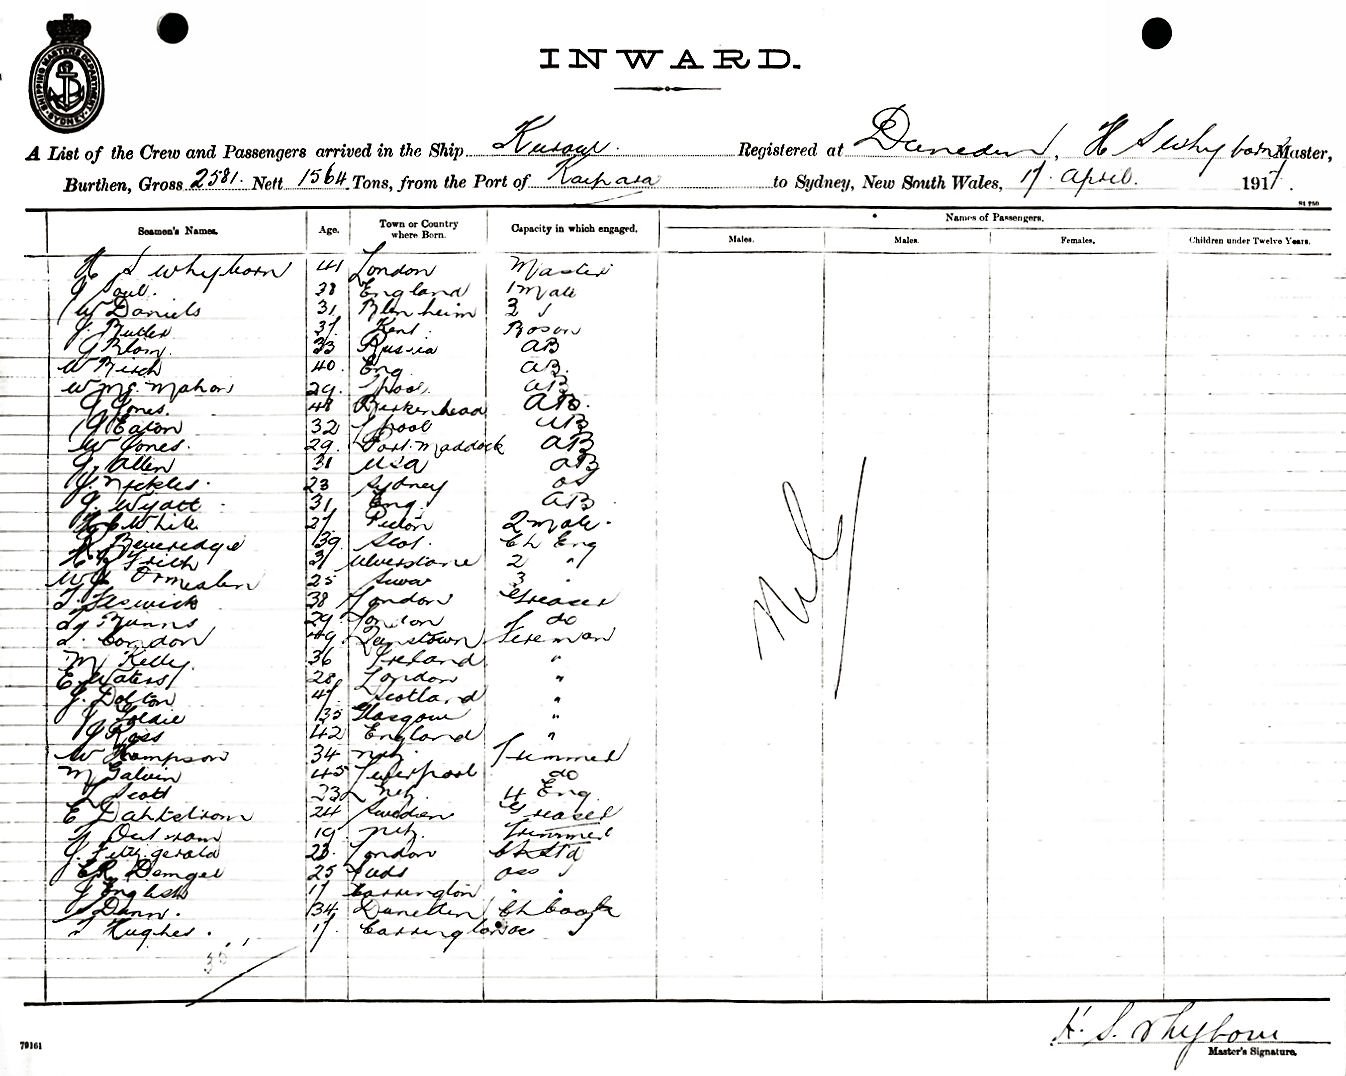 SHIPPING MASTERS DEPARTMENT SYDNEY
INWARD.
A List of the Crew and Passengers arrived in the Ship Registered at Dunedin, H S Whyborn Master,
Burthen, Gross 2581. Nett 1564 Tons, from the Port of Kaipara to Sydney, New South Wales, 17 April. 1917.
Seamen's Names. Age. Town or Country where Born. Capacity in which engaged. Names of Passengers.
Males. Males. Females. Children under Twelve Years.
H S Whyborn 41 London Master
J Saul. 38 England 1 Mate
W Daniels 31 Blenheim 3 "
J. Butler 37 Kent. Boson
J Blom. 33 Russia AB
W Birch 40. Eng AB.
W Mc Mahon 29. L'pool. AB
J Jones. 48 Birkenhead AB.
J Eaton 32 L'pool AB
W Jones. 29. Port Maddock AB
J. Allen 31 USA AB
J. Nickles. 23 Sydney OS
J. Wyatt 31 Eng. AB
White 27 Picton 2 Mate.
R Beveridge 39 Scot. Ch Eng
Frith 31 Ulverstone 2 "
25 Suva 3 "
38 London Greaser
29. London do
L. Condon 49. Fireman
M Kelly. 36 Ireland "
E. Waters 28, London "
J. Dolton 47. Scotland "
J Goldie 35 Glasgow "
J Ross 42 England "
W Thompson 34 NZ. Trimmer
M Galvin 45 Liverpool do
L Scott 23 NZ 4 Eng.
E Dahlstrom 24 Sweden Greaser
Outram 19 NZ. Trimmer
J. Fitzgerald 23. London Ch Std
Demgel 25 Leeds
J English 17 Carrington " "
J Dunn. 34 Dunedin Ch Cook
T Hughes. 17. Carrington
35
Nil
H. S. Whyborn
Master's Signature.
79161